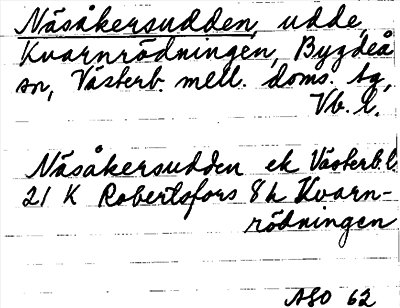 Näsåkersudden, udde,
Kvarnrödningen, Bygdeå
sn, Västerb. mell. doms. tg,
Vb. l.
Näsåkersudden ek Västerb l
21 K Robertsfors 8h Kvarn-
rödningen
ASO 62